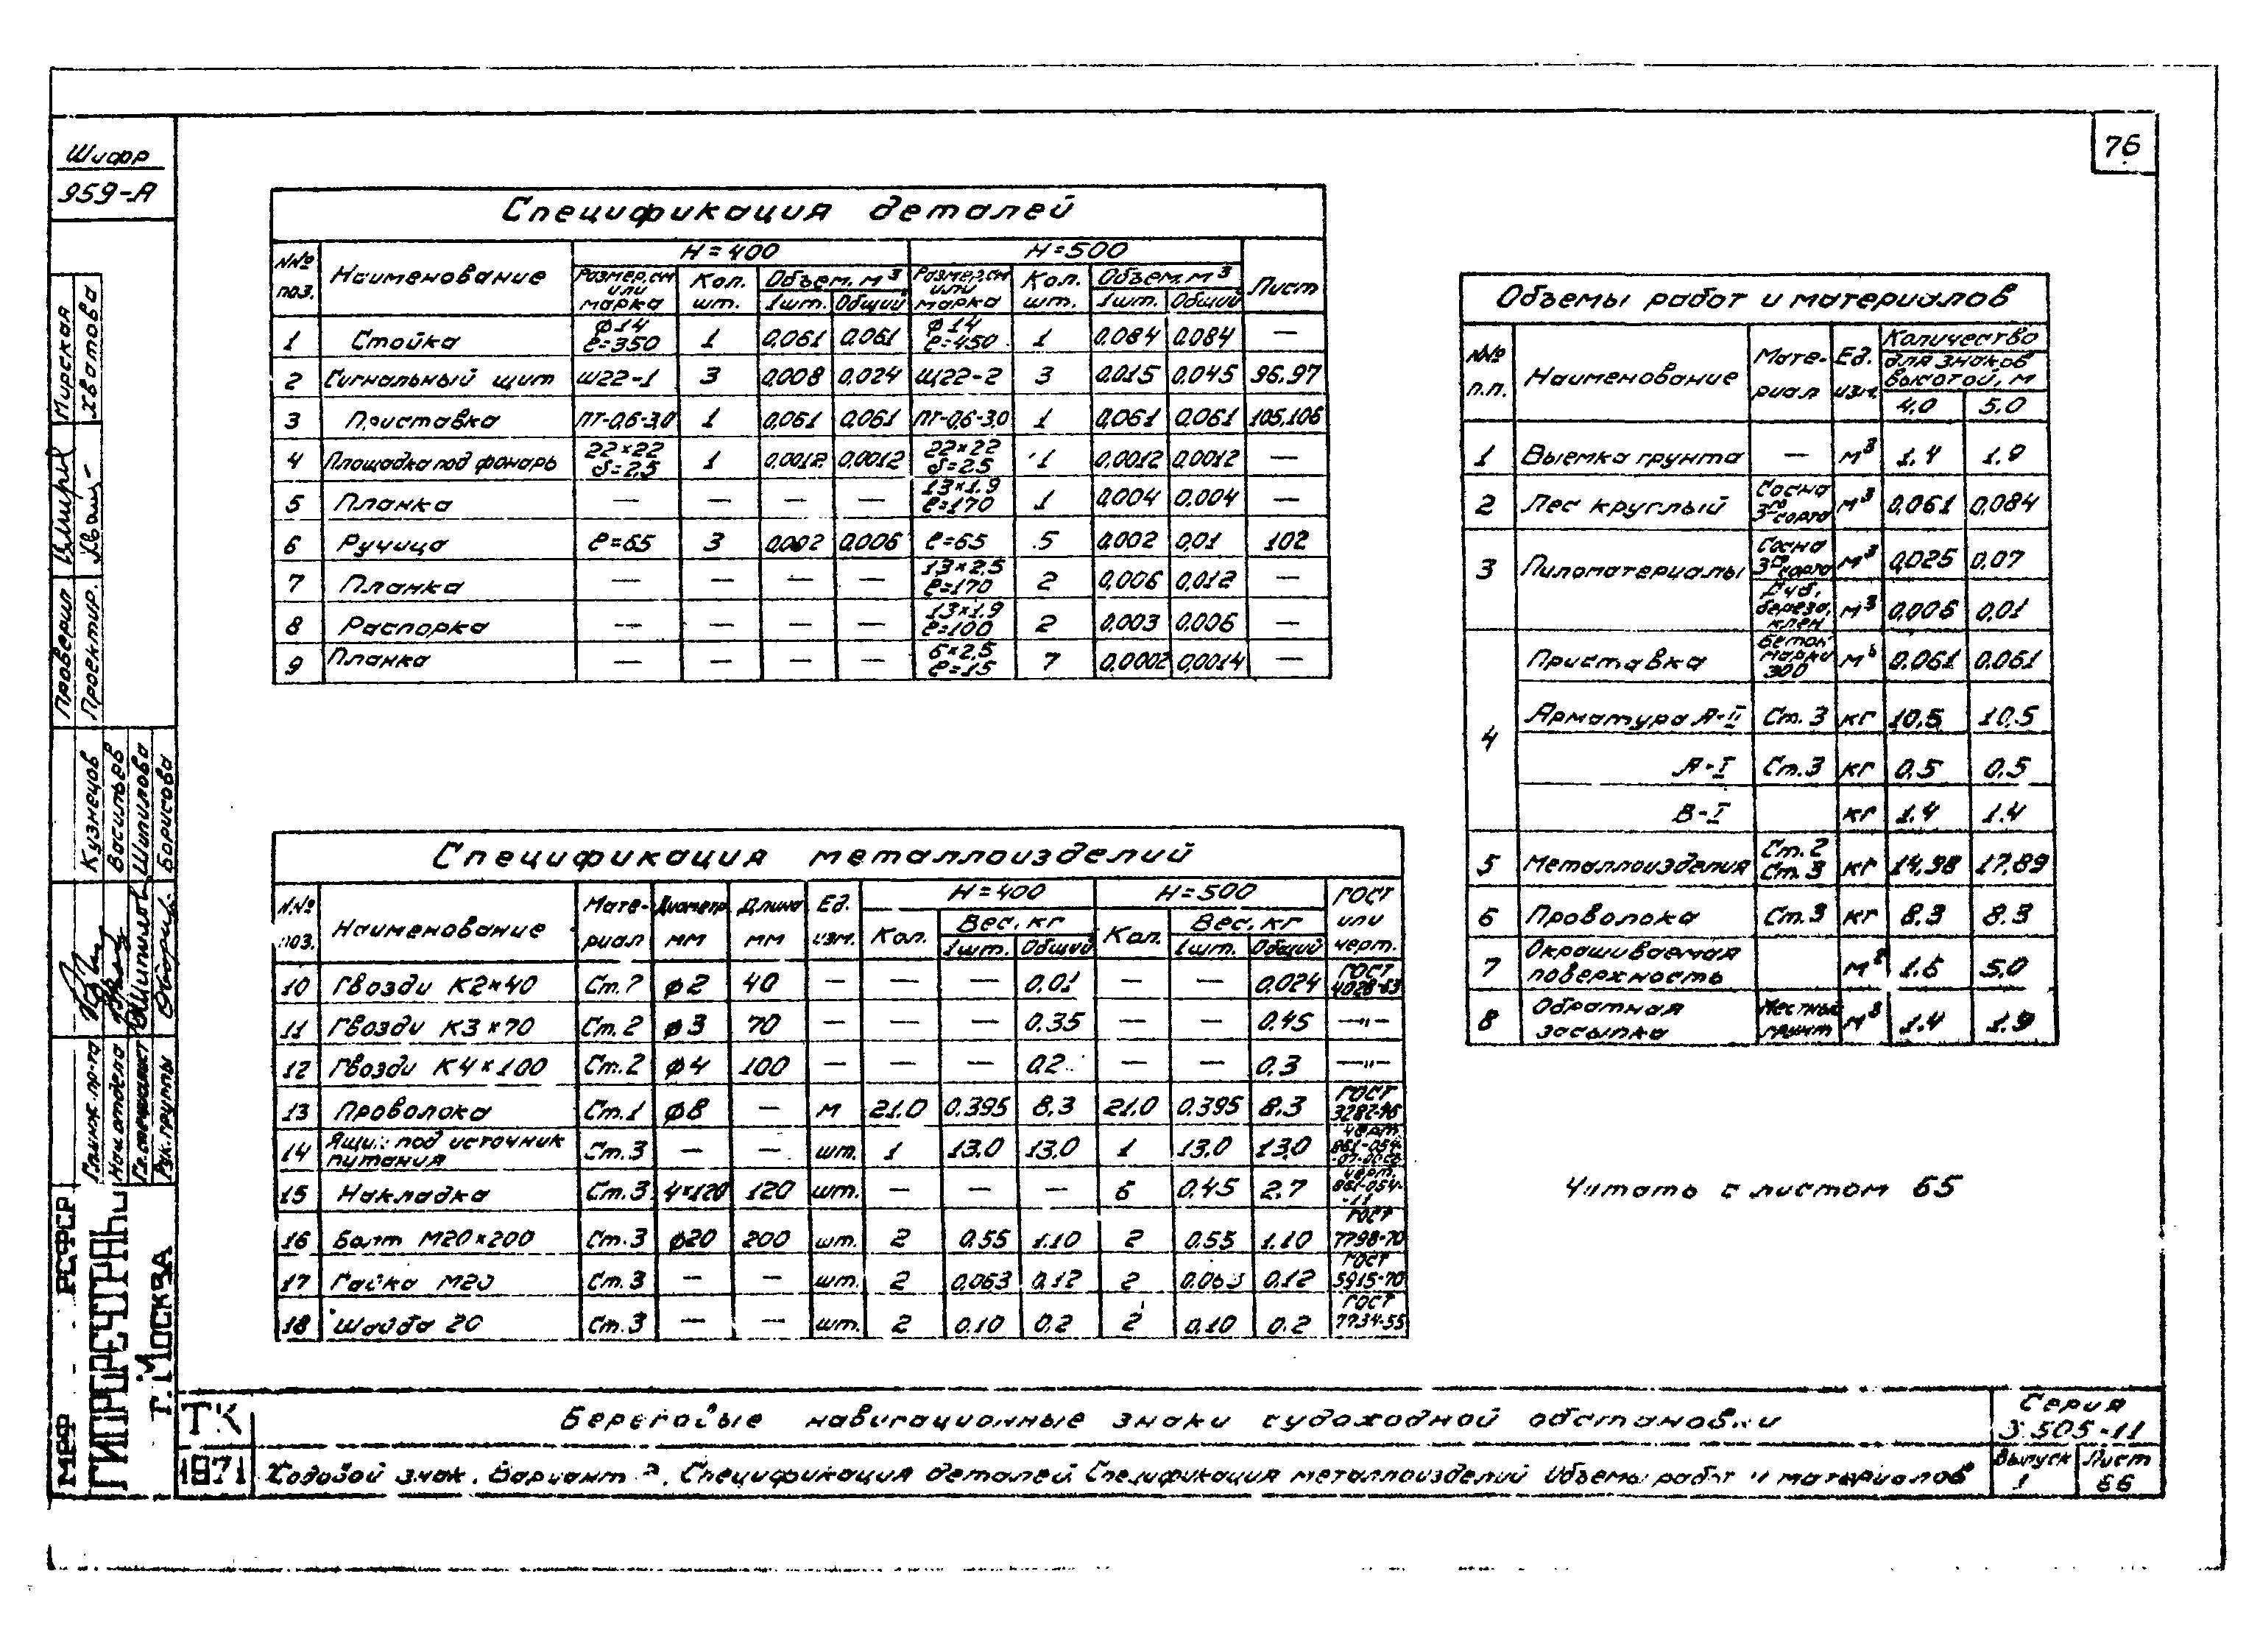 76
Шифр
959-А
Спецификация деталей
NNº поз. Наименование H=400 H=500 Лист
Размер, см или марка Кол. шт. Объем, м³ 1шт. Общий Размер, см или марка Кол. шт. Объем, м³ 1шт. Общий
1 Стойка ф14 ℓ=350 1 0,061 0,061 ф14 ℓ=450 1 0,084 0,084 —
2 Сигнальный щит Щ22-1 3 0,008 0,024 Щ22-2 3 0,015 0,045 96,97
3 Приставка ПТ-0,6-3,0 1 0,061 0,061 ПТ-0,6-3,0 1 0,061 0,061 105,106
4 Площадка под фонарь 22×22 δ=2,5 1 0,0012 0,0012 22×22 δ=2,5 1 0,0012 0,0012 —
5 Планка — — — — 13×1,9 ℓ=170 1 0,004 0,004 —
6 Ручица ℓ=65 3 0,002 0,006 ℓ=65 5 0,002 0,01 102
7 Планка — — — — 13×2,5 ℓ=170 2 0,006 0,012 —
8 Распорка — — — — 13×1,9 ℓ=100 2 0,003 0,006 —
9 Планка — — — — 6×2,5 ℓ=15 7 0,0002 0,0014 —
Объемы работ и материалов
NNº п.п. Наименование Мате-риал Ед. изм. Количество для знаков высотой, м
4,0 5,0
1 Выемка грунта — м³ 1,4 1,9
2 Лес круглый Сосна 3го сорта м³ 0,061 0,084
3 Пиломатериалы Сосна 3го сорта м³ 0,025 0,07
Дуб, береза, клен м³ 0,006 0,01
4 Приставка Бетон марки 300 м³ 0,061 0,061
Арматура А-II Ст.3 кг 10,5 10,5
А-I Ст.3 кг 0,5 0,5
В-I кг 1,4 1,4
5 Металлоизделия Ст.2 Ст.3 кг 14,98 17,89
6 Проволока Ст.3 кг 8,3 8,3
7 Окрашиваемая поверхность м² 1,6 5,0
8 Обратная засыпка Местный грунт м³ 1,4 1,9
Спецификация металлоизделий
NNº поз. Наименование Мате-риал Диаметр мм Длина мм Ед. изм. H=400 H=500 ГОСТ или черт.
Кол. Вес, кг 1шт. Общий Кол. Вес, кг 1шт. Общий
10 Гвозди К2×40 Ст.2 ф2 40 — — 0,01 — — 0,024 ГОСТ 4028-63
11 Гвозди К3×70 Ст.2 ф3 70 — — — 0,35 — — 0,45 —"—
12 Гвозди К4×100 Ст.2 ф4 100 — — — 0,2 — — 0,3 —"—
13 Проволока Ст.1 ф8 — м 21,0 0,395 8,3 21,0 0,395 8,3 ГОСТ 3282-46
14 Ящик под источник питания Ст.3 — — шт. 1 13,0 13,0 1 13,0 13,0 черт.
15 Накладка Ст.3 4×120 120 шт. — — — 6 0,45 2,7 черт. 861-054-11
16 Болт М20×200 Ст.3 ф20 200 шт. 2 0,55 1,10 2 0,55 1,10 ГОСТ 7798-70
17 Гайка М20 Ст.3 — — шт. 2 0,063 0,12 2 0,063 0,12 ГОСТ 5915-70
18 Шайба 20 Ст.3 — — шт. 2 0,10 0,2 2 0,10 0,2 ГОСТ
Читать с листом 65
ТК
1971
Береговые навигационные знаки судоходной обстановки
Ходовой знак. Вариант 2. Спецификация деталей Спецификация металлоизделий Объемы работ и материалов
Серия
3.505-11
Выпуск 1
Лист 66
Проверил Мирская
Проектир. Хватова
Гл.инж.пр-та Кузнецов
Нач.отдела Васильев
Гл.специалист Шипилова
Рук.группы Борисова
МРФ РСФСР
ГИПРОРЕЧТРАНС
г. МОСКВА